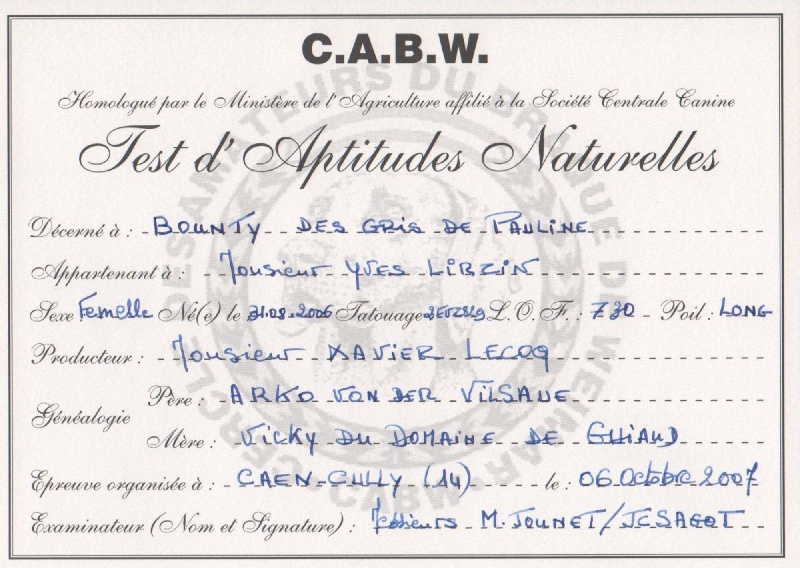 C.A.B.W.
Homologué par le Ministère de l'Agriculture affilié à la Société Centrale Canine
Test d'Aptitudes Naturelles
Décerné à : BOUNTY DES GRIS DE PAULINE
Appartenant à : Monsieur YVES LIRZIN
Sexe Femelle Né(e) le 31.08.2006 Tatouage L.O.F. : 730 Poil : LONG
Producteur : Monsieur XAVIER LECOQ
Généalogie
Père : ARKO VON DER VILSAUE
Mère : VICKY DU DOMAINE DE GHIAUD
Epreuve organisée à : CAEN-CULLY (14) le : 06 Octobre 2007
Examinateur (Nom et Signature) : Messieurs M. JOUNET/JESAGOT
CERCLE DES AMATEURS DU BRAQUE DE WEIMAR
CABW